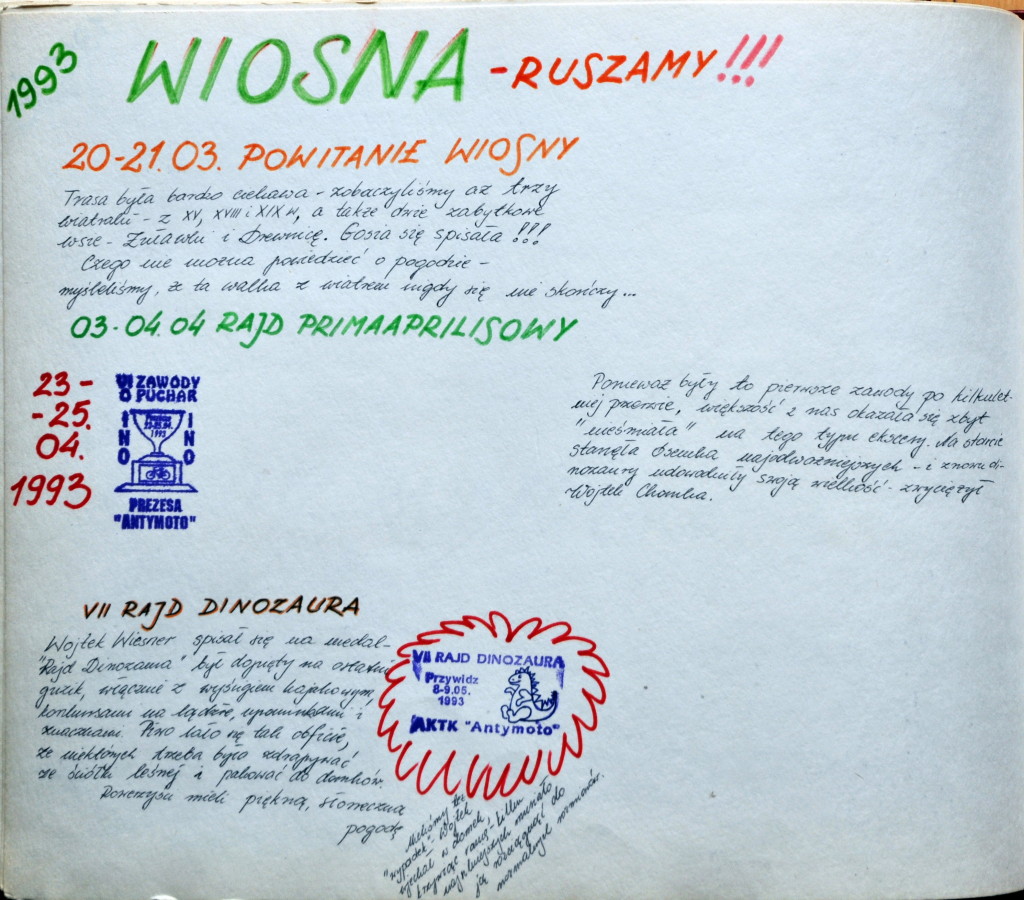 1993
WIOSNA - RUSZAMY!!!
20-21.03. POWITANIE WIOSNY
Trasa była bardzo ciekawa - zobaczyliśmy aż trzy
wiatraki - z XV, XVIII i XIX w, a także dwie zabytkowe
wsie - Żuławki i Drewnicę. Gosia się spisała!!!
Czego nie można powiedzieć o pogodzie -
myśleliśmy, że ta walka z wiatrem nigdy się nie skończy...
03-04.04 RAJD PRIMAAPRILISOWY
23-
-25.
04.
1993
ZAWODY
O PUCHAR
INO
INO
1993
PREZESA
"ANTYMOTO"
Ponieważ były to pierwsze zawody po kilkulet-
niej przerwie, większość z nas okazała się zbyt
"nieśmiała" na tego typu ekscesy. Na starcie
stanęła ósemka najodważniejszych - i znowu di-
nozaury udowodniły swoją wielkość - zwyciężył
Wojtek Chomka.
VII RAJD DINOZAURA
Wojtek Wiesner spisał się na medal -
"Rajd Dinozaura" był dopięty na ostatni
guzik, włącznie z wyścigiem kajakowym,
konkursami na lądzie, upominkami i
znaczkami. Piwo lało się tak obficie,
że niektórych trzeba było zdrapywać
ze ściółki leśnej i pakować do domków.
Rowerzyści mieli piękną, słoneczną
pogodę
VII RAJD DINOZAURA
Przywidz
8-9.05.
1993
AKTK "Antymoto"
Mieliśmy też
"wypadek". Wojtek
wjechał w domek,
krzywiąc ramę - kilku
najsilniejszych musiało
ją wyciągać do
normalnych rozmiarów.